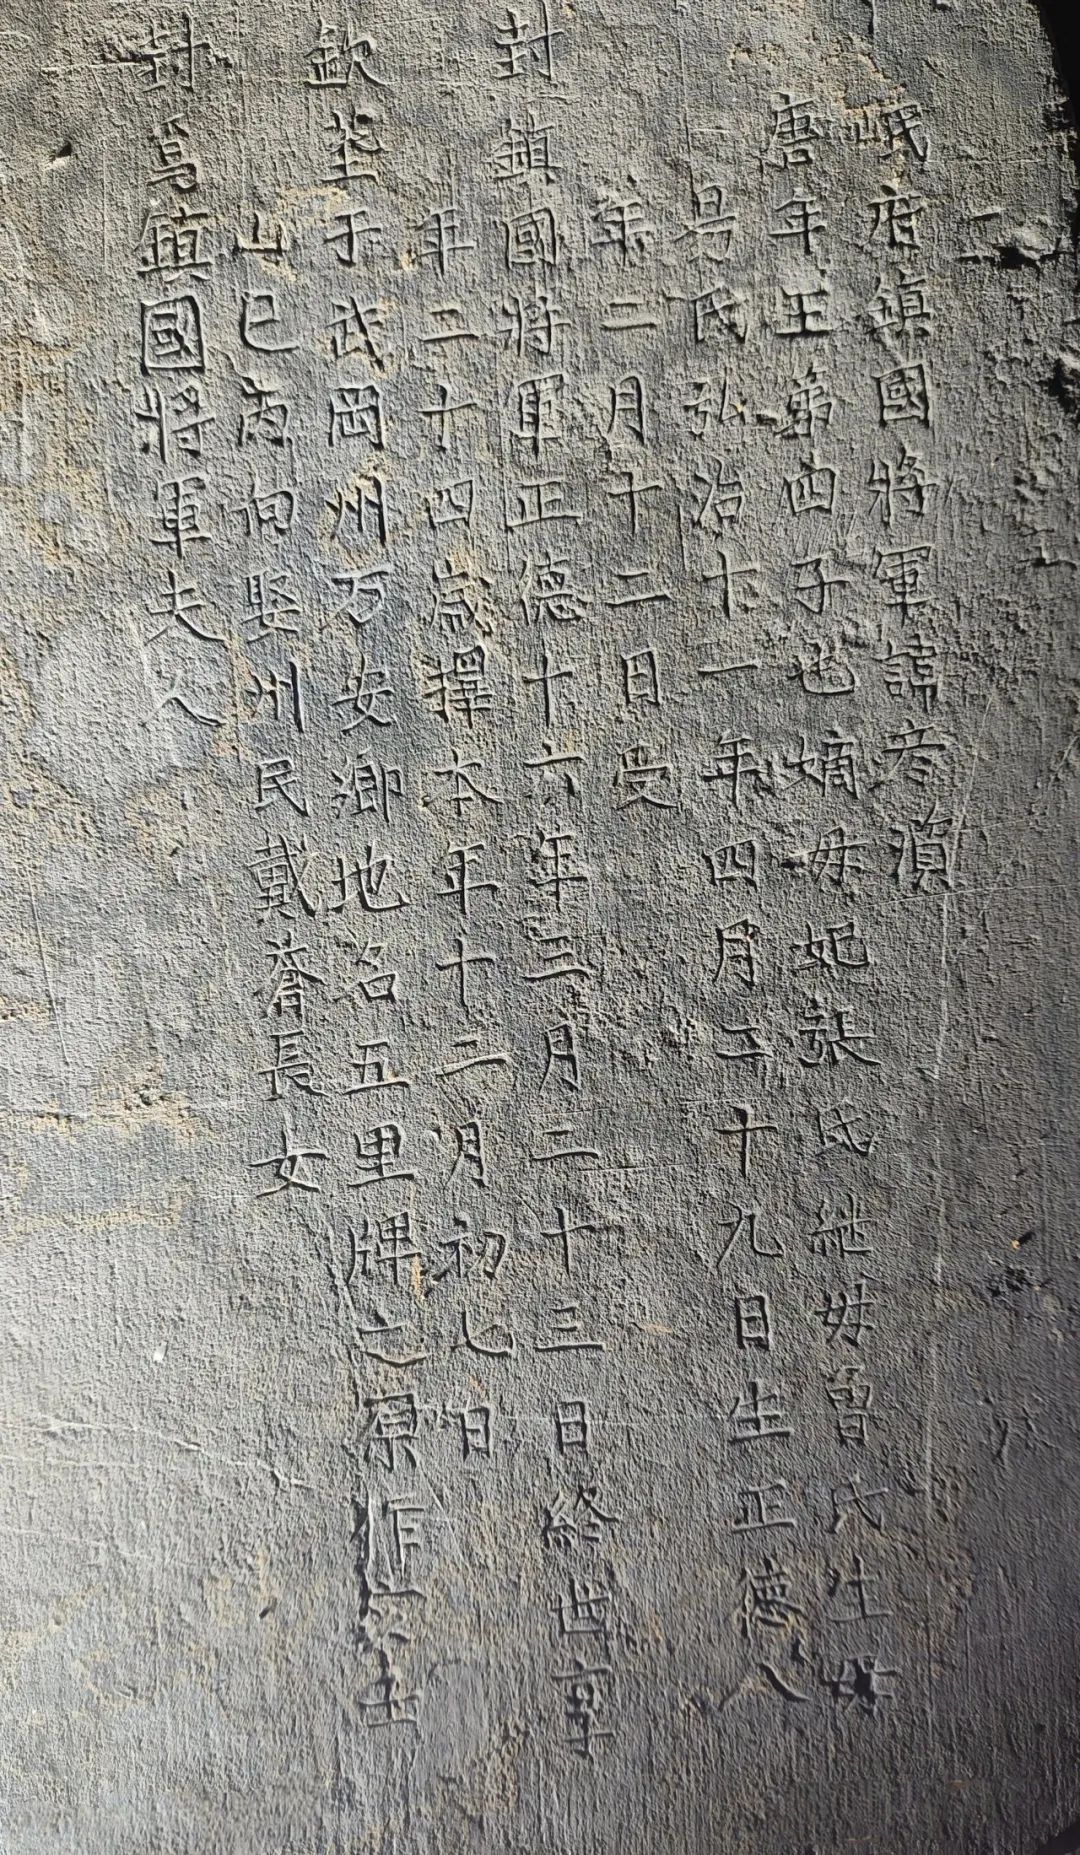 岷府鎮國將軍諱彦濵
唐年王弟四子也嫡母妃張氏継母曽氏生母
易氏弘治十一年四月二十九日生正德八
年二月十二日受
封鎮國將軍正德十六年三月二十三日終世享
年二十四歲擇本年十二月初七日
欽塟于武岡州万安鄉地名五里牌之原作亥
山巳丙向娶州民戴脊長女
封爲鎮國將軍夫人